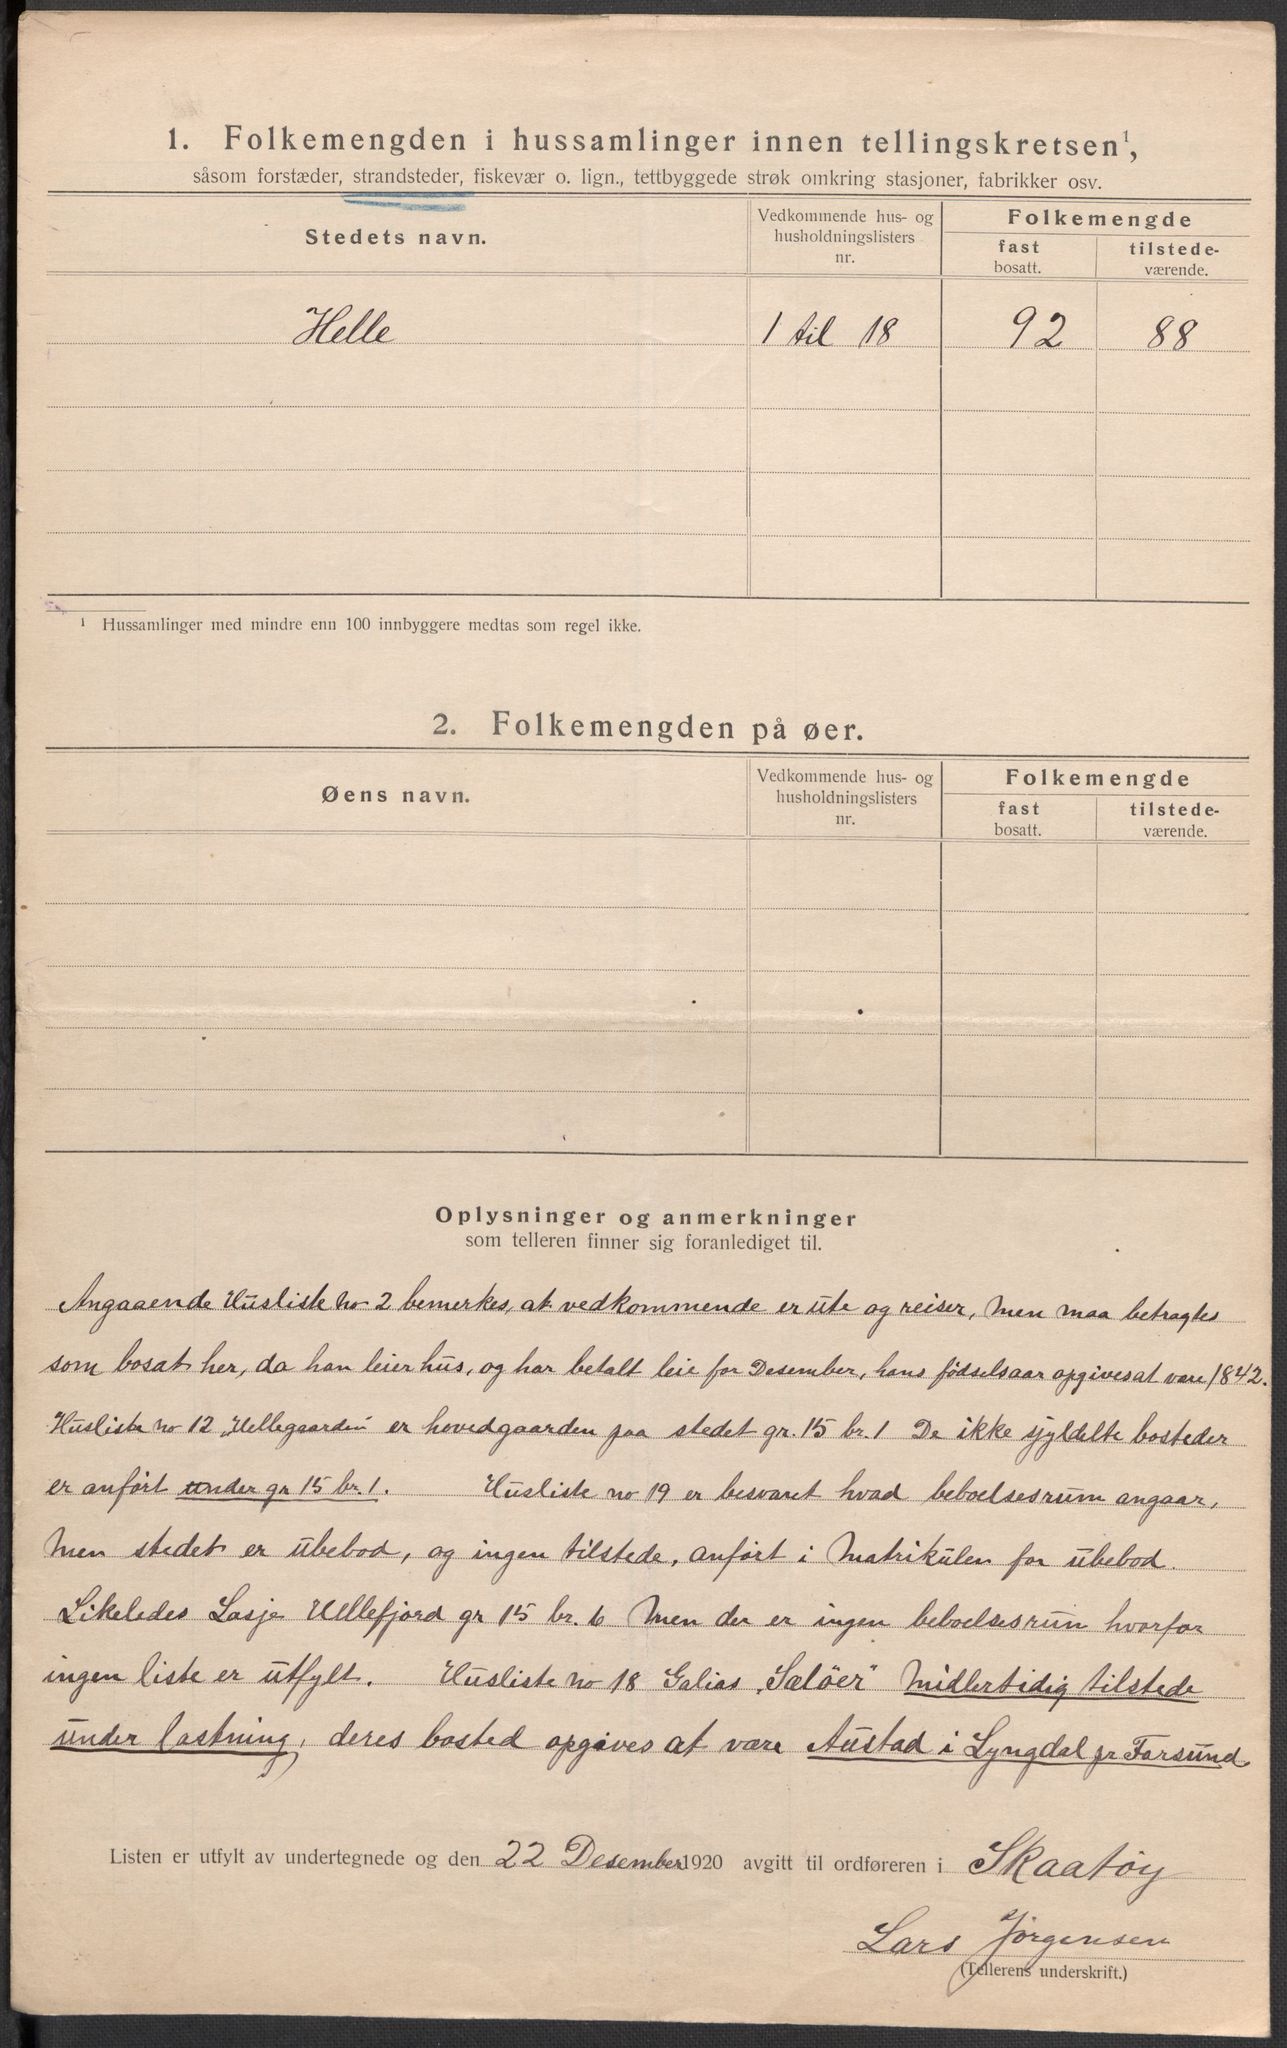 1. Folkemengden i hussamlinger innen tellingskretsen¹,
såsom forstæder, strandsteder, fiskevær o. lign., tettbyggede strøk omkring stasjoner, fabrikker osv.
Stedets navn.
Vedkommende hus- og husholdningslisters nr.
Folkemengde
fast bosatt.
tilstede-værende.
Helle 1 til 18 92 88
¹ Hussamlinger med mindre enn 100 innbyggere medtas som regel ikke.
2. Folkemengden på øer.
Øens navn.
Vedkommende hus- og husholdningslisters nr.
Folkemengde
fast bosatt.
tilstede-værende.
Oplysninger og anmerkninger
som telleren finner sig foranlediget til.
Angaaende Husliste no 2 bemerkes, at vedkommende er ute og reiser, men maa betragtes
som bosat her, da han leier hus, og har betalt leie for Desember, hans fødselsaar opgives at være 1842.
Husliste no 12 „Hellegaarden" er hovedgaarden paa stedet gr. 15 br. 1 De ikke sjyldelte bosteder
er anført under gr 15 br. 1. Husliste no 19 er besvaret hvad beboelsesrum angaar,
men stedet er ubebod, og ingen tilstede, anført i Matrikulen for ubebod.
Likeledes Lasje Hellefjord gr 15 br. 6 men der er ingen beboelsesrum hvorfor
ingen liste er utfylt. Husliste no 18 Galias „Seløer" midlertidig tilstede
under lastning, deres bosted opgives at være Austad i Lyngdal pr Farsund
Listen er utfylt av undertegnede og den 22 Desember 1920 avgitt til ordføreren i Skaatøy
Lars Jørgensen
(Tellerens underskrift.)